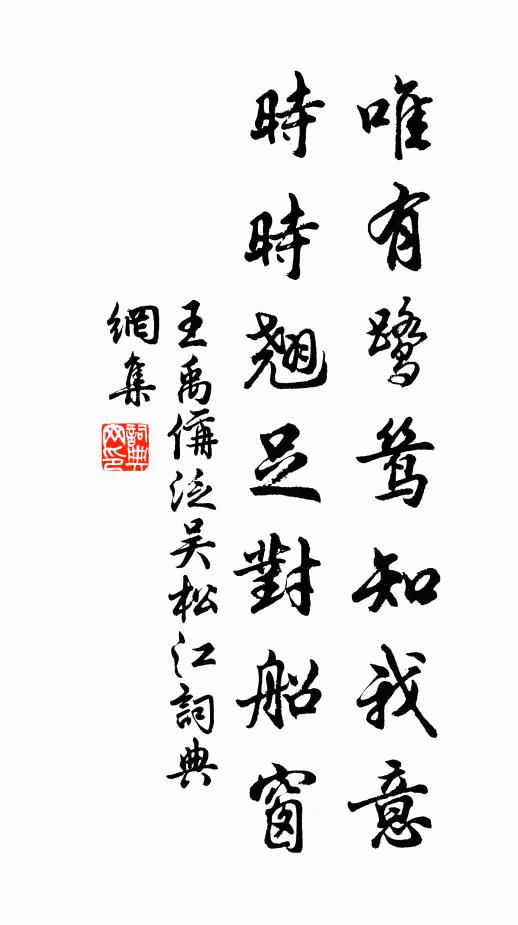 唯有鷺鶿知我意
時時翹足對船窗
王禹偁泛吳松江詞典
網集
詞典
网印